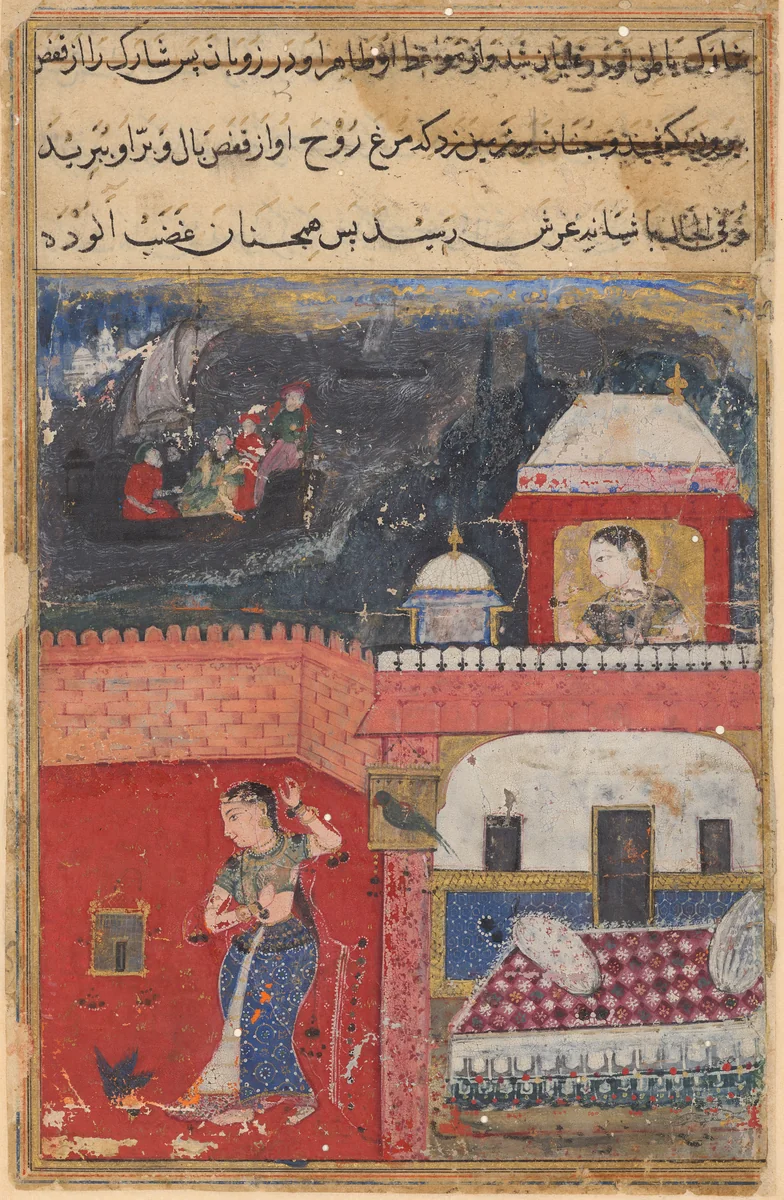 شارک باطن او در غلیان شد و از مواعظ او ظاهر او در زوبان پس شارک را از قفص
بیرون کشید و چنان بر زمین زد که مرغ روح او از قفص بال و پر او ببرید
و فی الحال باشیانه عرش رسید پس همچنان غضب آلوده